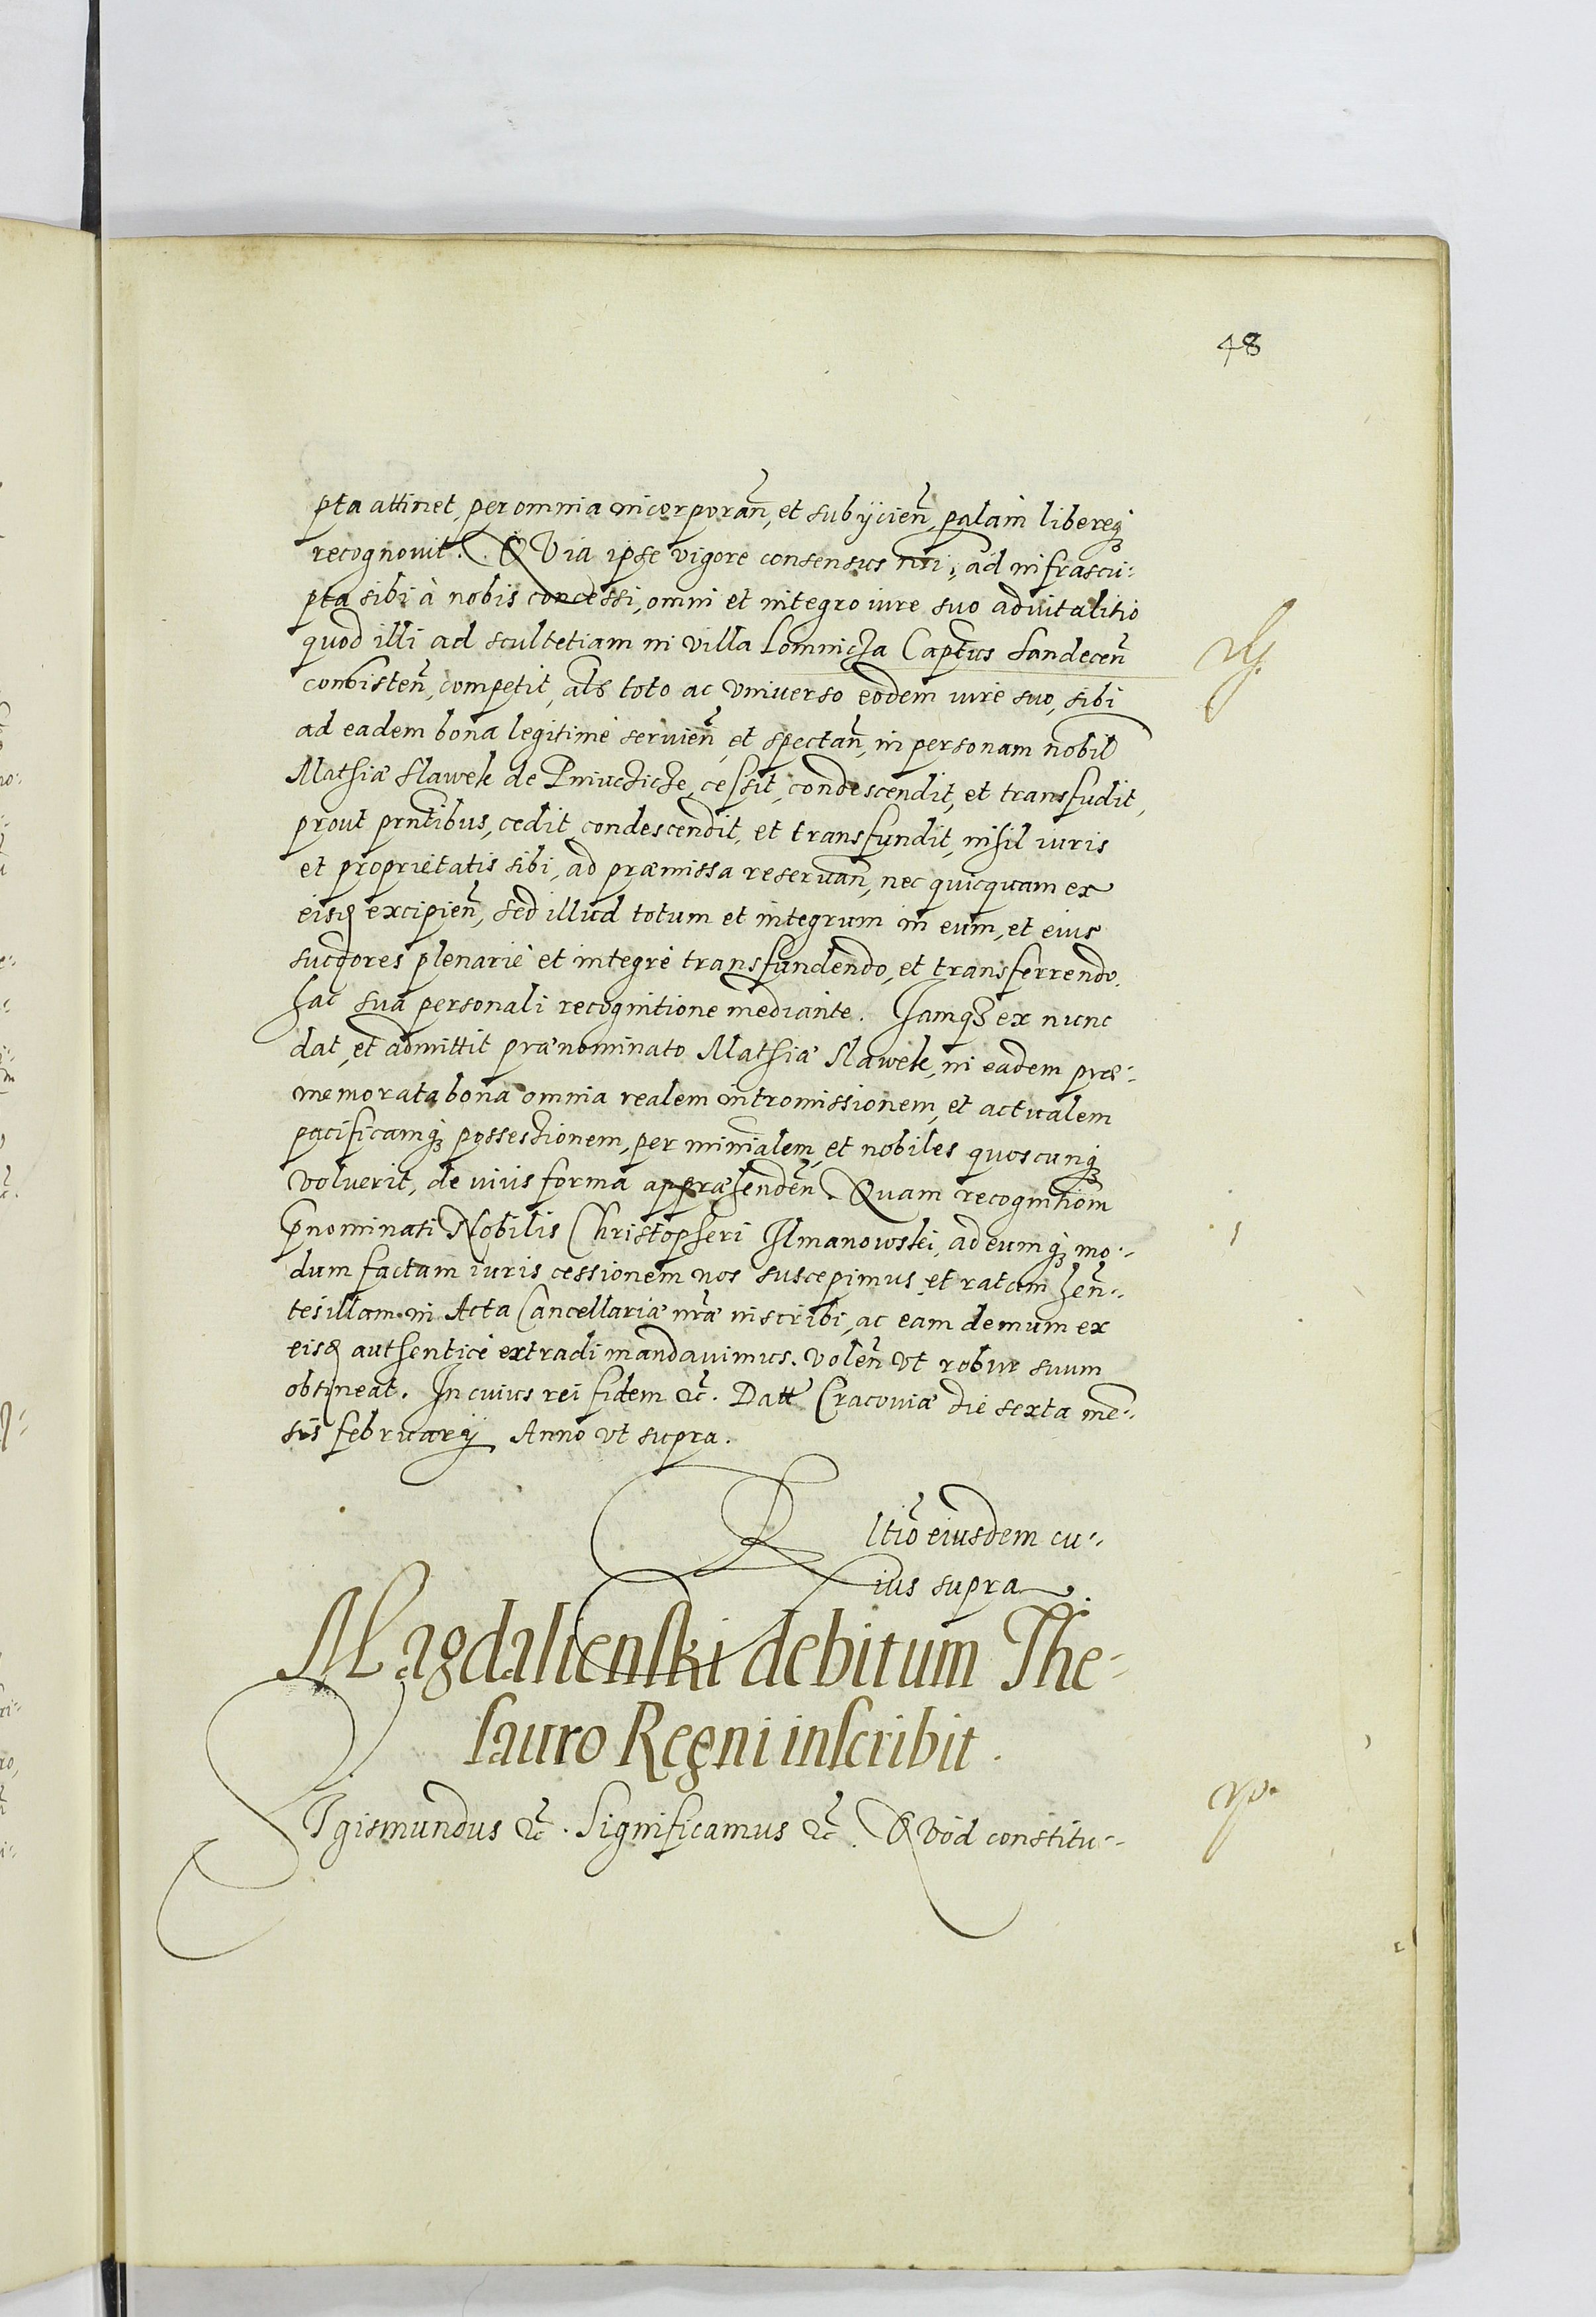 48
pta attinet, per omnia incorporañ, et subÿcieñ, palam libereq;
recognovit. QVia ipse vigore consensus nri, ad infrascri-
pta sibi à nobis concessi, omni et integro iure suo advitalitio
quod illi ad scultetiam in villa Lomnicza Captus Sandeceñ
consisteñ, competit, als toto ac vniuerso eodem iure suo, sibi
ad eadem bona legitimè servieñ et spectañ, in personam nobil
Mathiæ Slawek de Pniuchiche, cessit, condescendit, et transfudit,
prout prntibus, cedit, condescendit, et transfundit, nihil iuris
et proprietatis sibi, ad præmissa reservañ, nec quicquam ex
eisd excipieñ, sed illud totum et integrum in eum, et eius
sucdores plenariè et integrè transfundendo, et transferrendo.
hac sua personali recognitione mediante. Iamq3 ex nunc
dat, et admittit prænominato Mathiæ Slawek, in eadem præ-
memorata bona omnia realem intromissionem, et actualem
pacificamq; possessionem, per minialem, et nobiles quoscunq;
voluerit, de iuris forma appræhendeñ. Quam recognitiom
pnominati Nobilis Christopheri Ilmanowski, ad eumq; mo-
dum factam iuris cessionem nos suscepimus, et ratam heñ-
tes illam in Acta Cancellariæ nræ inscribi, ac eam demum ex
eisd authenticè extradi mandavimus. Voleñ vt robur suum
obtineat. In cuius rei fidem &c. Datt Cracoviæ die sexta me-
sis februarÿ Anno vt supra.
Rltio eiusdem cu-
ius supra.
Magdalienski debitum The-
sauro Regni inscribit.
SIgismundus &c. Significamus &c. QVod constitu-